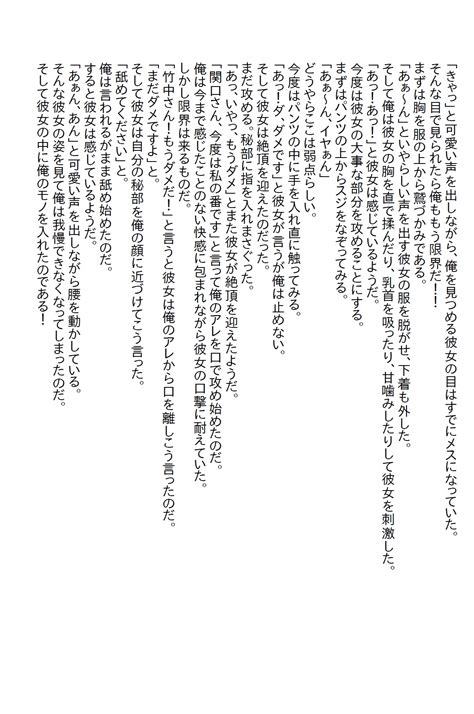 「きゃっ」と可愛い声を出しながら、俺を見つめる彼女の目はすでにメスになっていた。
そんな目で見られたら俺ももう限界だ！！
まずは胸を服の上から鷲づかみである。
「あぁ～ん」といやらしい声を出す彼女の服を脱がせ、下着も外した。
そして俺は彼女の胸を直で揉んだり、乳首を吸ったり、甘噛みしたりして彼女を刺激した。
「あっ！あっ！」と彼女は感じているようだ。
今度は彼女の大事な部分を攻めることにする。
まずはパンツの上からスジをなぞってみる。
「あぁ～ん、イヤぁん」
どうやらここは弱点らしい。
今度はパンツの中に手を入れ直に触ってみる。
「あっ！ダ、ダメです」と彼女が言うが俺は止めない。
そして彼女は絶頂を迎えたのだった。
まだ攻める。秘部に指を入れまさぐった。
「あっ、いやっ、もうダメ」とまた彼女が絶頂を迎えたようだ。
「関口さん、今度は私の番です」と言って俺のアレを口で攻め始めたのだ。
俺は今まで感じたことのない快感に包まれながら彼女の口撃に耐えていた。
しかし限界は来るものだ。
「竹中さん！もうダメだ！」と言うと彼女は俺のアレから口を離しこう言ったのだ。
「まだダメですよ」と。
そして彼女は自分の秘部を俺の顔に近づけてこう言った。
「舐めてください」と。
俺は言われるがまま舐め始めたのだ。
すると彼女は感じているようだ。
「あぁん、あん」と可愛い声を出しながら腰を動かしている。
そんな彼女の姿を見て俺は我慢できなくなってしまったのだ。
そして彼女の中に俺のモノを入れたのである！